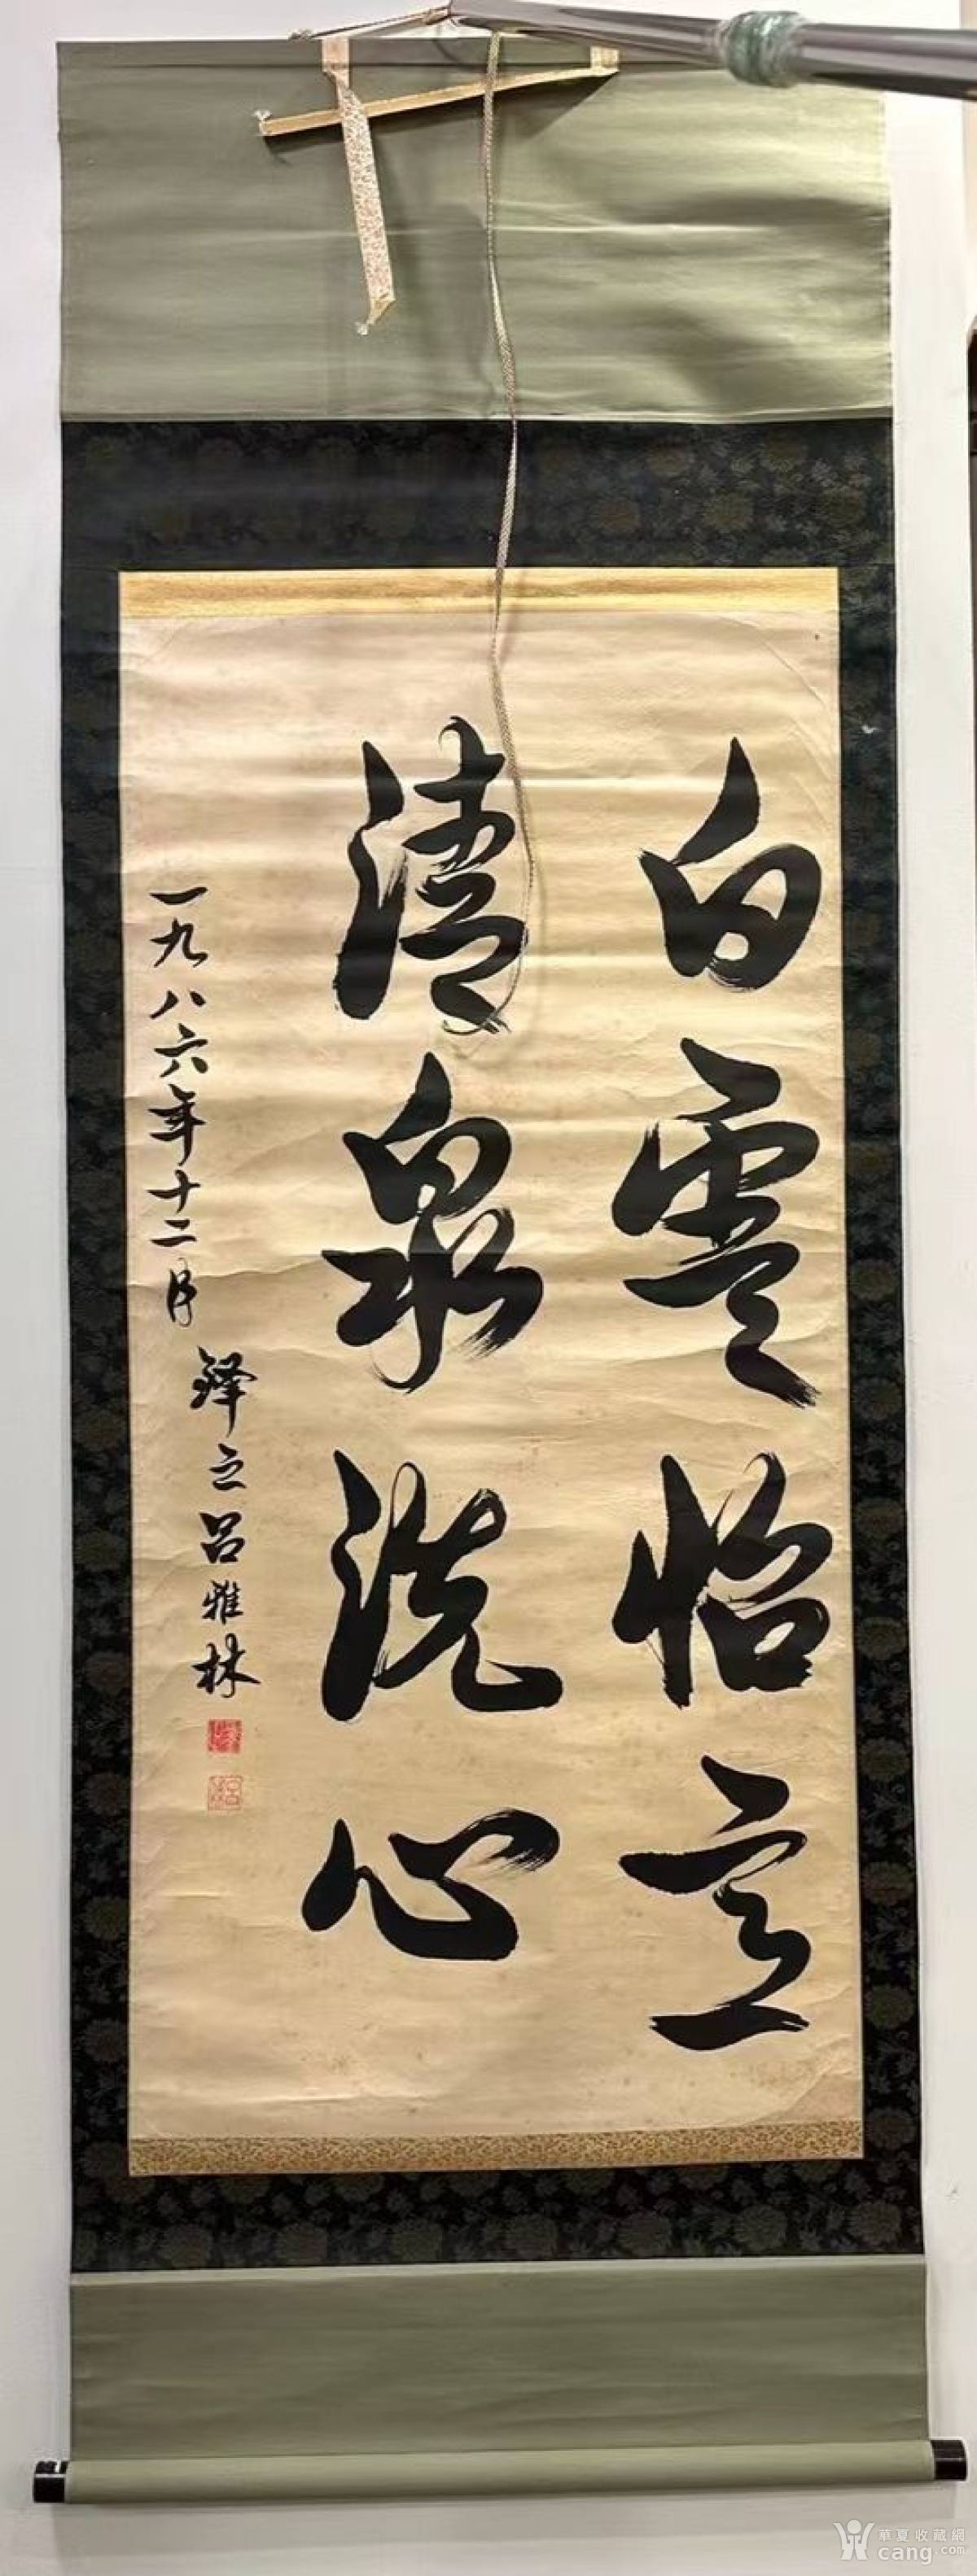 白雲怡意
清泉洗心
一九八六年十二月
鐸之呂雅林
華夏收藏網
cang.com